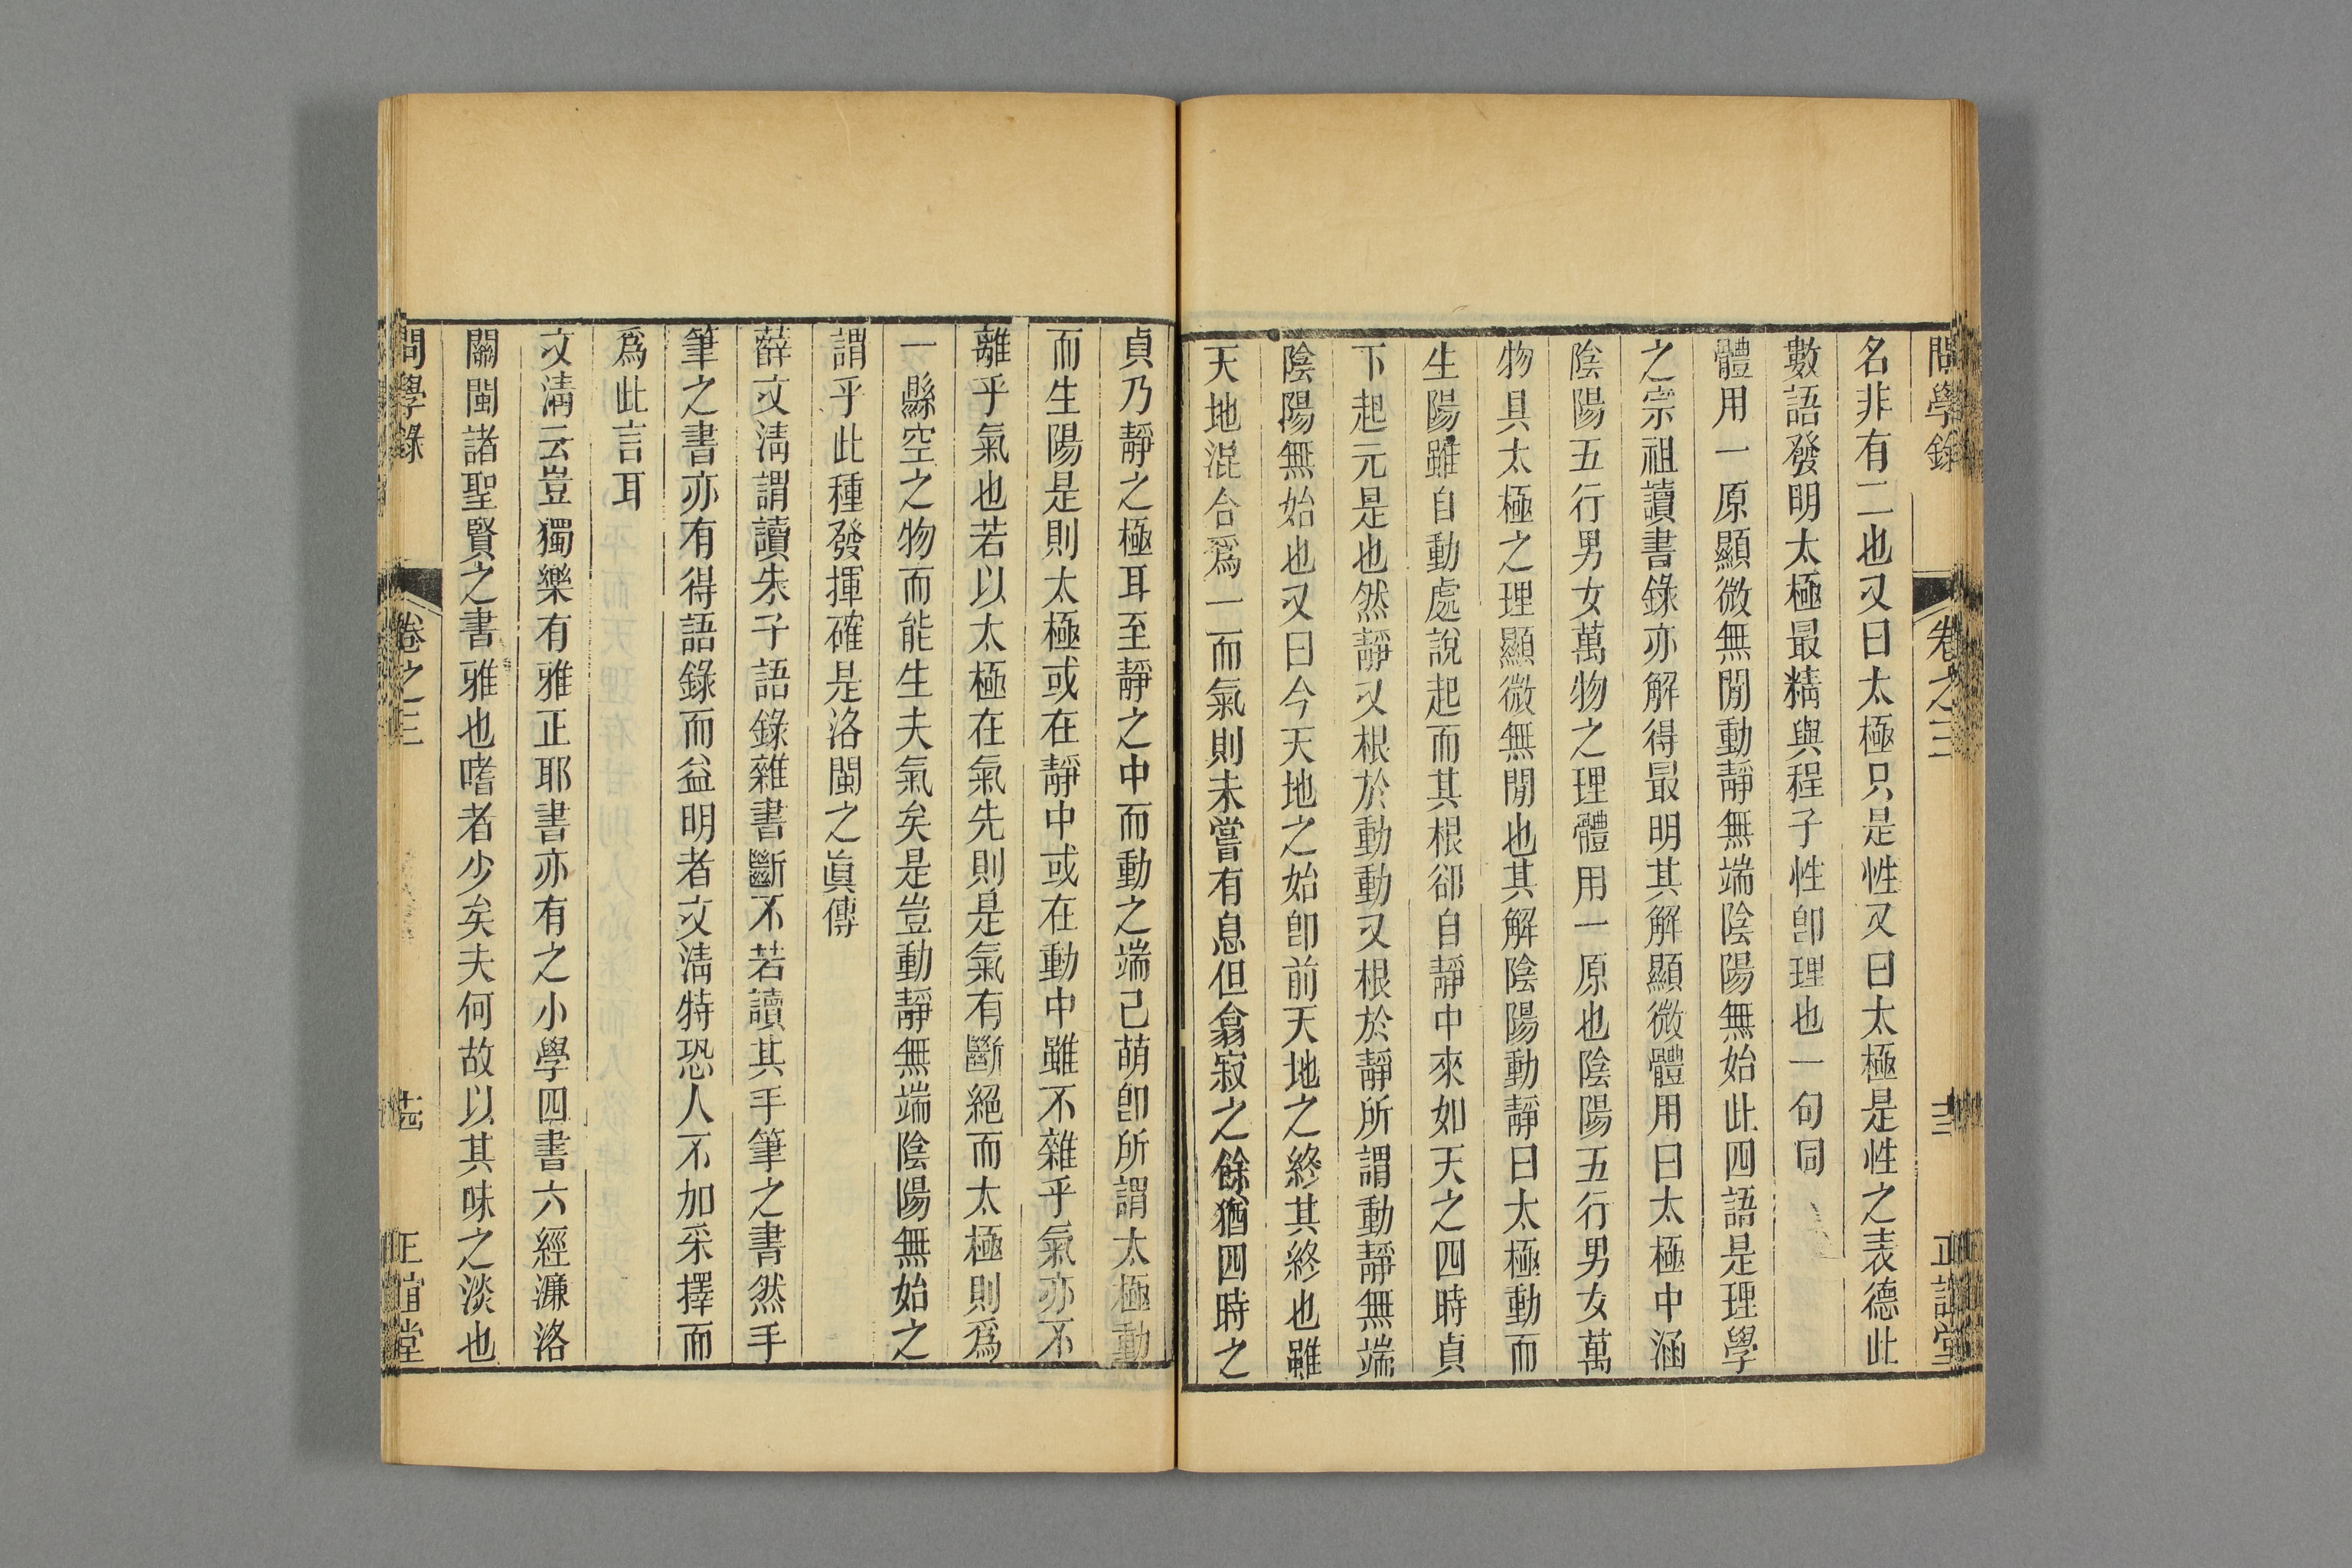 問學錄 卷之三 正誼堂
名非有二也又曰太極只是性又曰太極是性之表德此
數語發明太極最精與程子性卽理也一句同
體用一原顯微無閒動靜無端陰陽無始此四語是理學
之宗祖讀書錄亦解得最明其解顯微體用曰太極中涵
陰陽五行男女萬物之理體用一原也陰陽五行男女萬
物具太極之理顯微無閒也其解陰陽動靜曰太極動而
生陽雖自動處說起而其根卻自靜中來如天之四時貞
下起元是也然靜又根於動動又根於靜所謂動靜無端
陰陽無始也又曰今天地之始卽前天地之終其終也雖
天地混合爲一而氣則未嘗有息但翕寂之餘猶四時之
貞乃靜之極耳至靜之中而動之端已萌卽所謂太極動
而生陽是則太極或在靜中或在動中雖不雜乎氣亦不
離乎氣也若以太極在氣先則是氣有斷絕而太極則爲
一縣空之物而能生夫氣矣是豈動靜無端陰陽無始之
謂乎此種發揮確是洛閩之眞傳
薛文淸謂讀朱子語錄雜書斷不若讀其手筆之書然手
筆之書亦有得語錄而益明者文淸特恐人不加采擇而
爲此言耳
文淸云豈獨樂有雅正耶書亦有之小學四書六經濂洛
關閩諸聖賢之書雅也嗜者少矣夫何故以其味之淡也
問學錄 卷之三 正誼堂